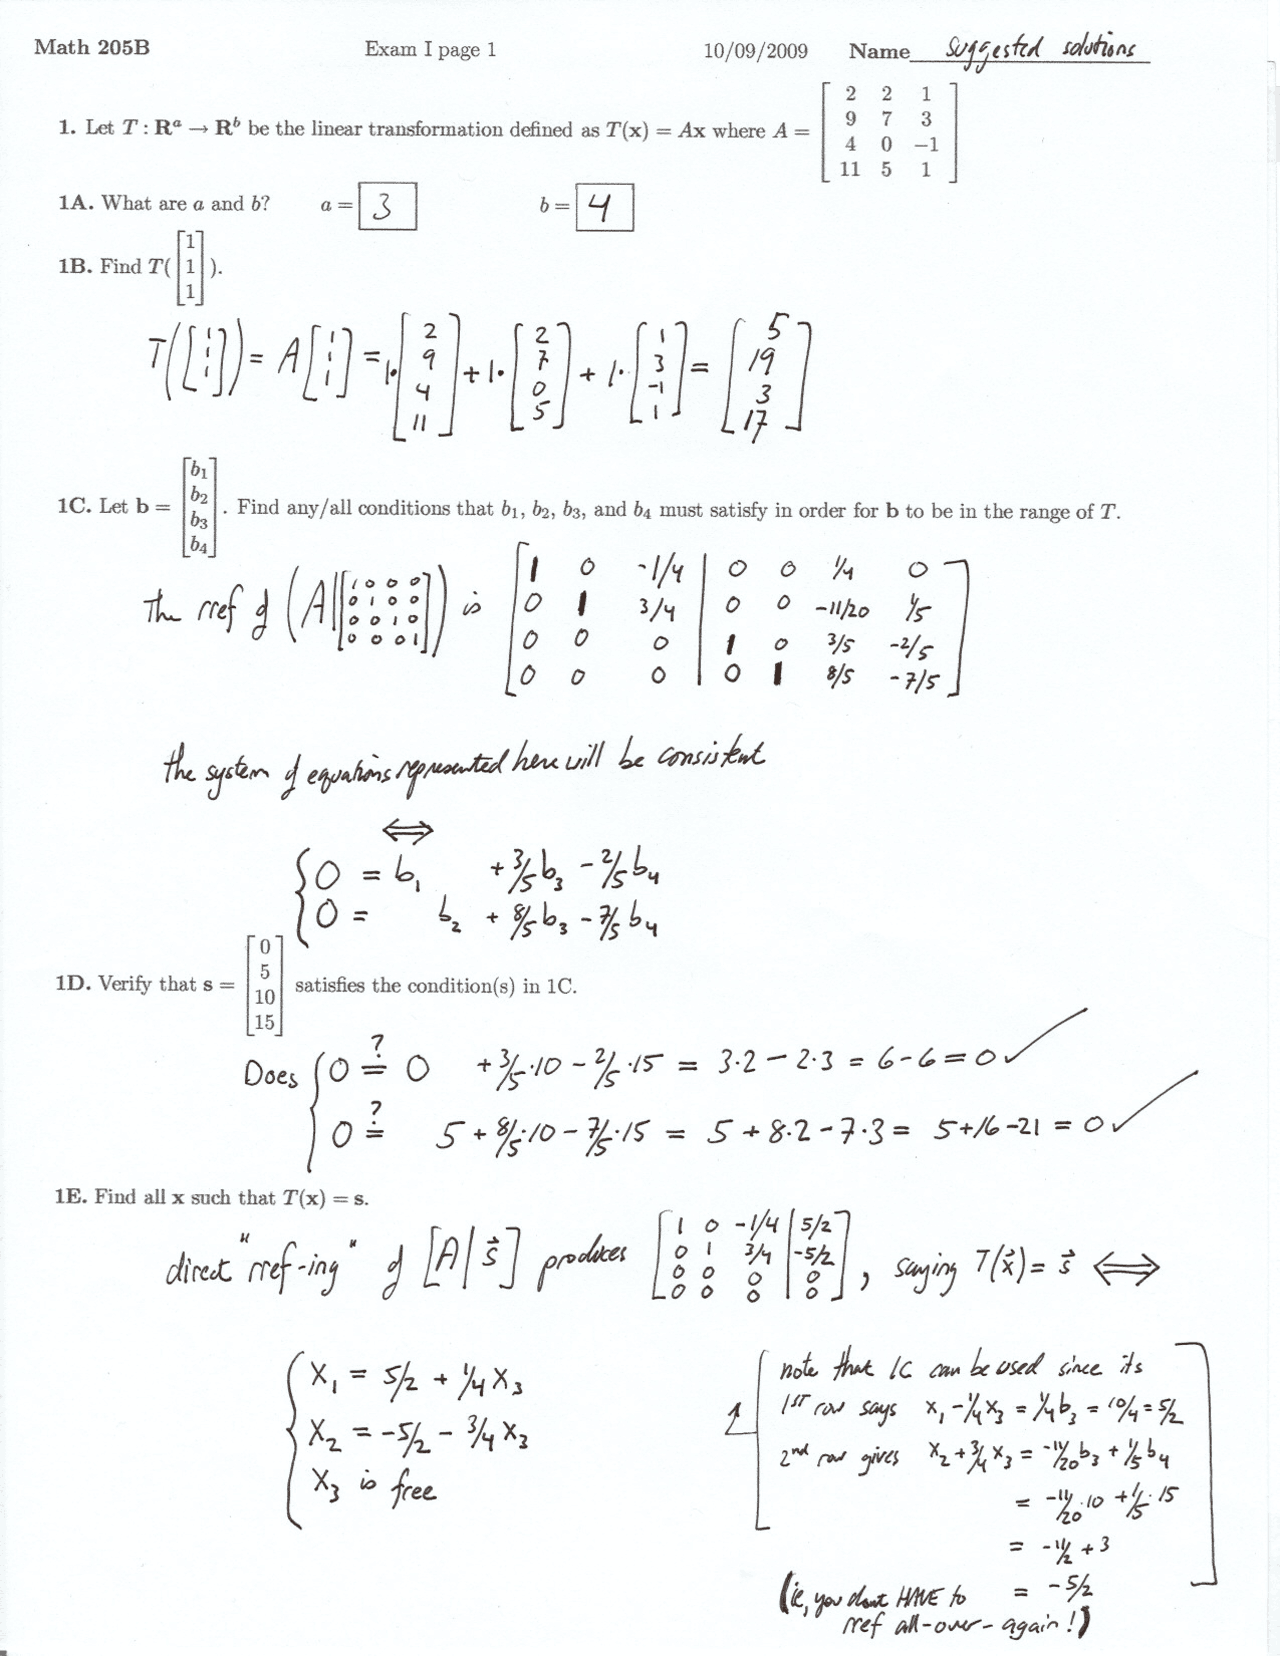 Math 205B Exam I page 1 10/09/2009 Name suggested solutions
1. Let T : Rᵃ → Rᵇ be the linear transformation defined as T(x) = Ax where A = [2 2 1; 9 7 3; 4 0 −1; 11 5 1]
1A. What are a and b? a = 3 b = 4
1B. Find T( [1; 1; 1] ).
T([1; 1; 1]) = A[1; 1; 1] = 1·[2; 9; 4; 11] + 1·[2; 7; 0; 5] + 1·[1; 3; -1; 1] = [5; 19; 3; 17]
1C. Let b = [b₁; b₂; b₃; b₄]. Find any/all conditions that b₁, b₂, b₃, and b₄ must satisfy in order for b to be in the range of T.
The rref of (A|[1 0 0 0; 0 1 0 0; 0 0 1 0; 0 0 0 1]) is [1 0 -1/4 | 0 0 1/4 0; 0 1 3/4 | 0 0 -11/20 1/5; 0 0 0 | 1 0 3/5 -2/5; 0 0 0 | 0 1 8/5 -7/5]
the system of equations represented here will be consistent
⟺
{ 0 = b₁ + 3/5 b₃ - 2/5 b₄
0 = b₂ + 8/5 b₃ - 7/5 b₄
1D. Verify that s = [0; 5; 10; 15] satisfies the condition(s) in 1C.
Does { 0 ≟ 0 + 3/5·10 - 2/5·15 = 3·2 - 2·3 = 6-6 = 0 ✓
0 ≟ 5 + 8/5·10 - 7/5·15 = 5 + 8·2 - 7·3 = 5+16-21 = 0 ✓
1E. Find all x such that T(x) = s.
direct "rref-ing" of [A|s⃗] produces [1 0 -1/4 | 5/2; 0 1 3/4 | -5/2; 0 0 0 | 0; 0 0 0 | 0], saying T(x⃗) = s⃗ ⟺
{ x₁ = 5/2 + 1/4 x₃
x₂ = -5/2 - 3/4 x₃
x₃ is free
[ note that 1C can be used since its
1ST row says x₁ - 1/4 x₃ = 1/4 b₃ = 10/4 = 5/2
2nd row gives x₂ + 3/4 x₃ = -11/20 b₃ + 1/5 b₄
= -11/20·10 + 1/5·15
= -11/2 + 3
= -5/2 ]
(ie, you dont HAVE to
rref all-over-again!)